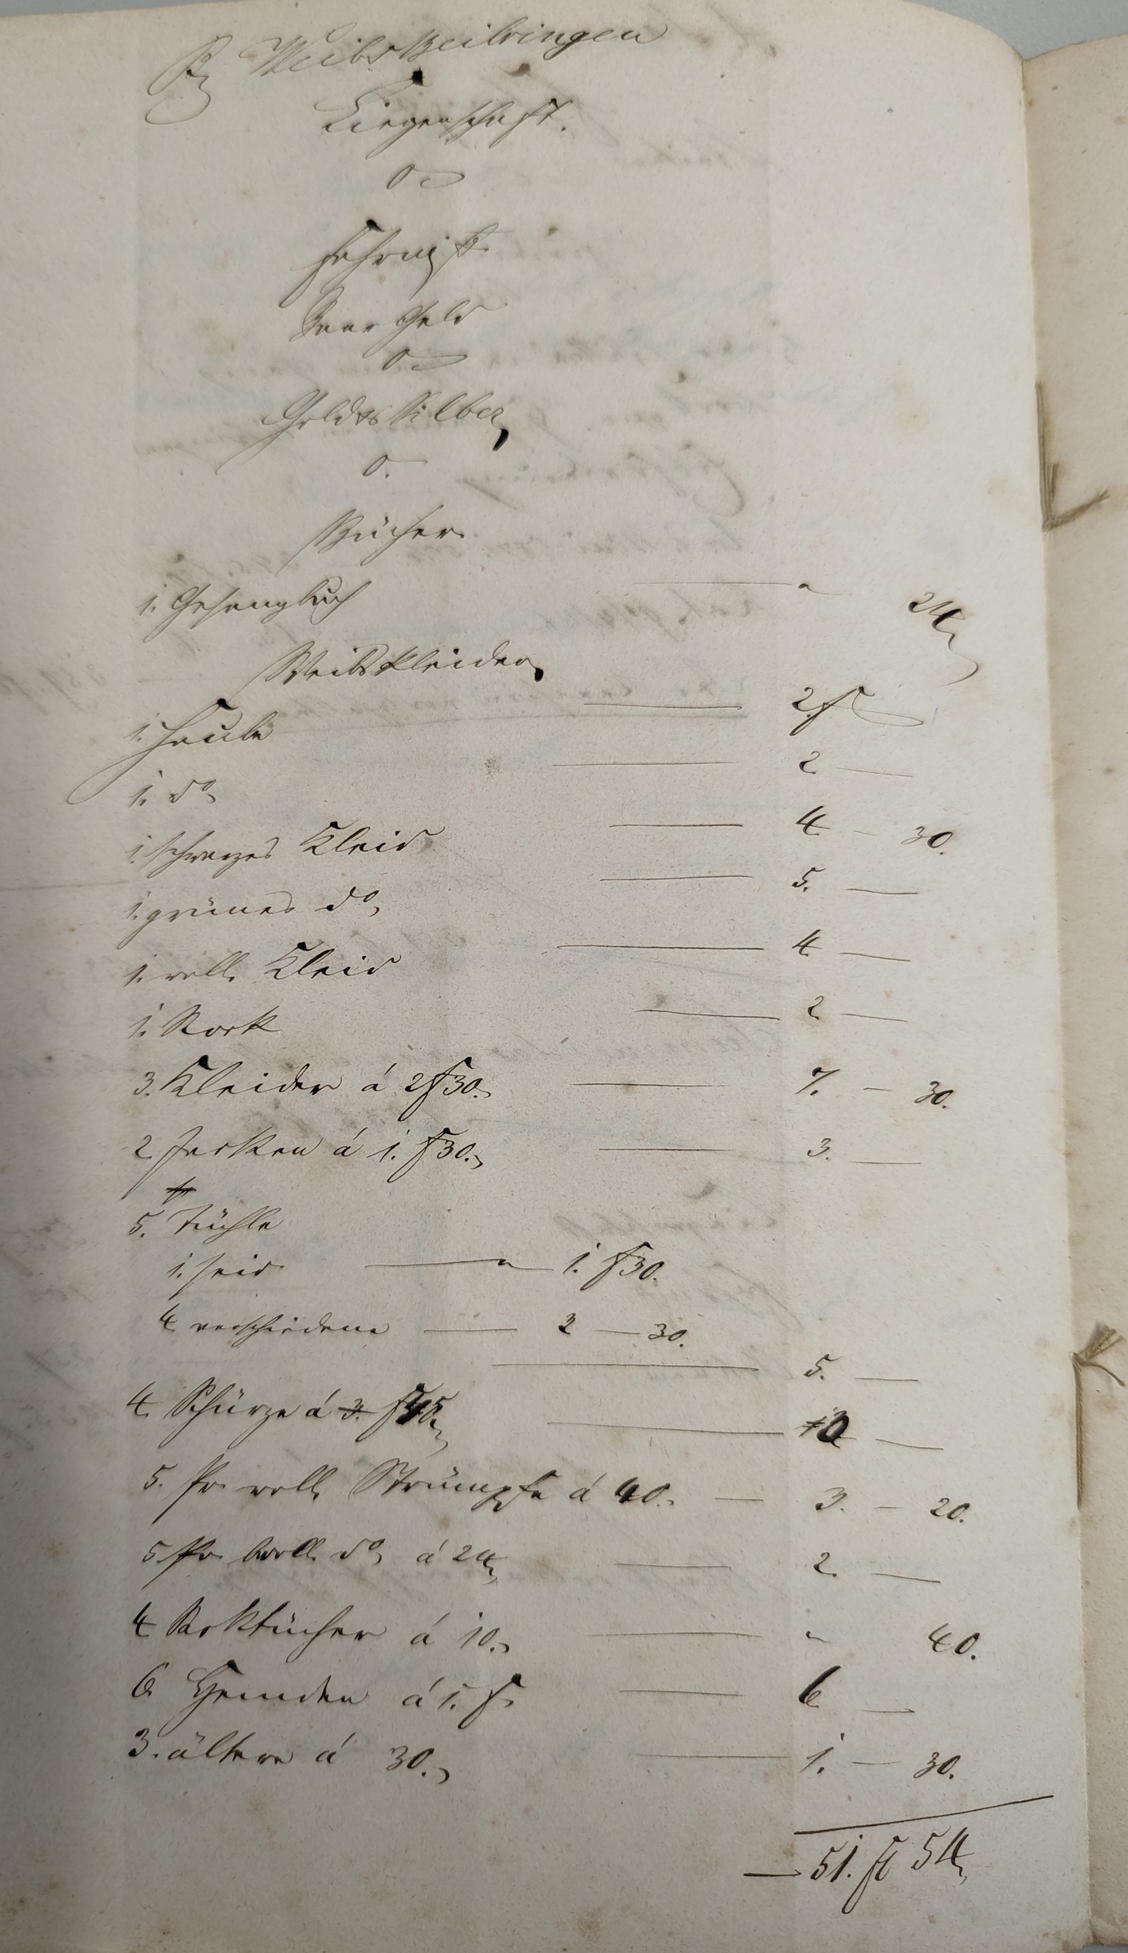 B, Weibs Beibringen
Liegenschaft.
0
Fahrniß.
Baar Geld
0
Gold & Silber,
0.
Bücher.
1. Gesangbuch — " 24
Weibskleider,
1. Haube — 2 f
1. do — 2 —
1. schwarzes Kleid — 4 — 30.
1. grünes do, — 5. —
1. woll. Kleid — 4 —
1. Rock — 2 —
3. Kleider á 2 f 30. — 7. — 30.
2 Jacken á 1. f 30. — 3. —
5. Tüchle
1. seid — 1. f 30.
4 verschiedene — 3 — 30.
— 5. —
4. Schürze á f 45. — 3 —
5. Pr woll. Strümpfe á 40. — 3. — 20.
5 Pr bwoll. do, á 24, — 2. —
4 Saktücher á 10. — " 40.
6 Hemden á 1. f. — 6 —
3. ältere á 30. — 1. — 30.
— 51. fl 54,